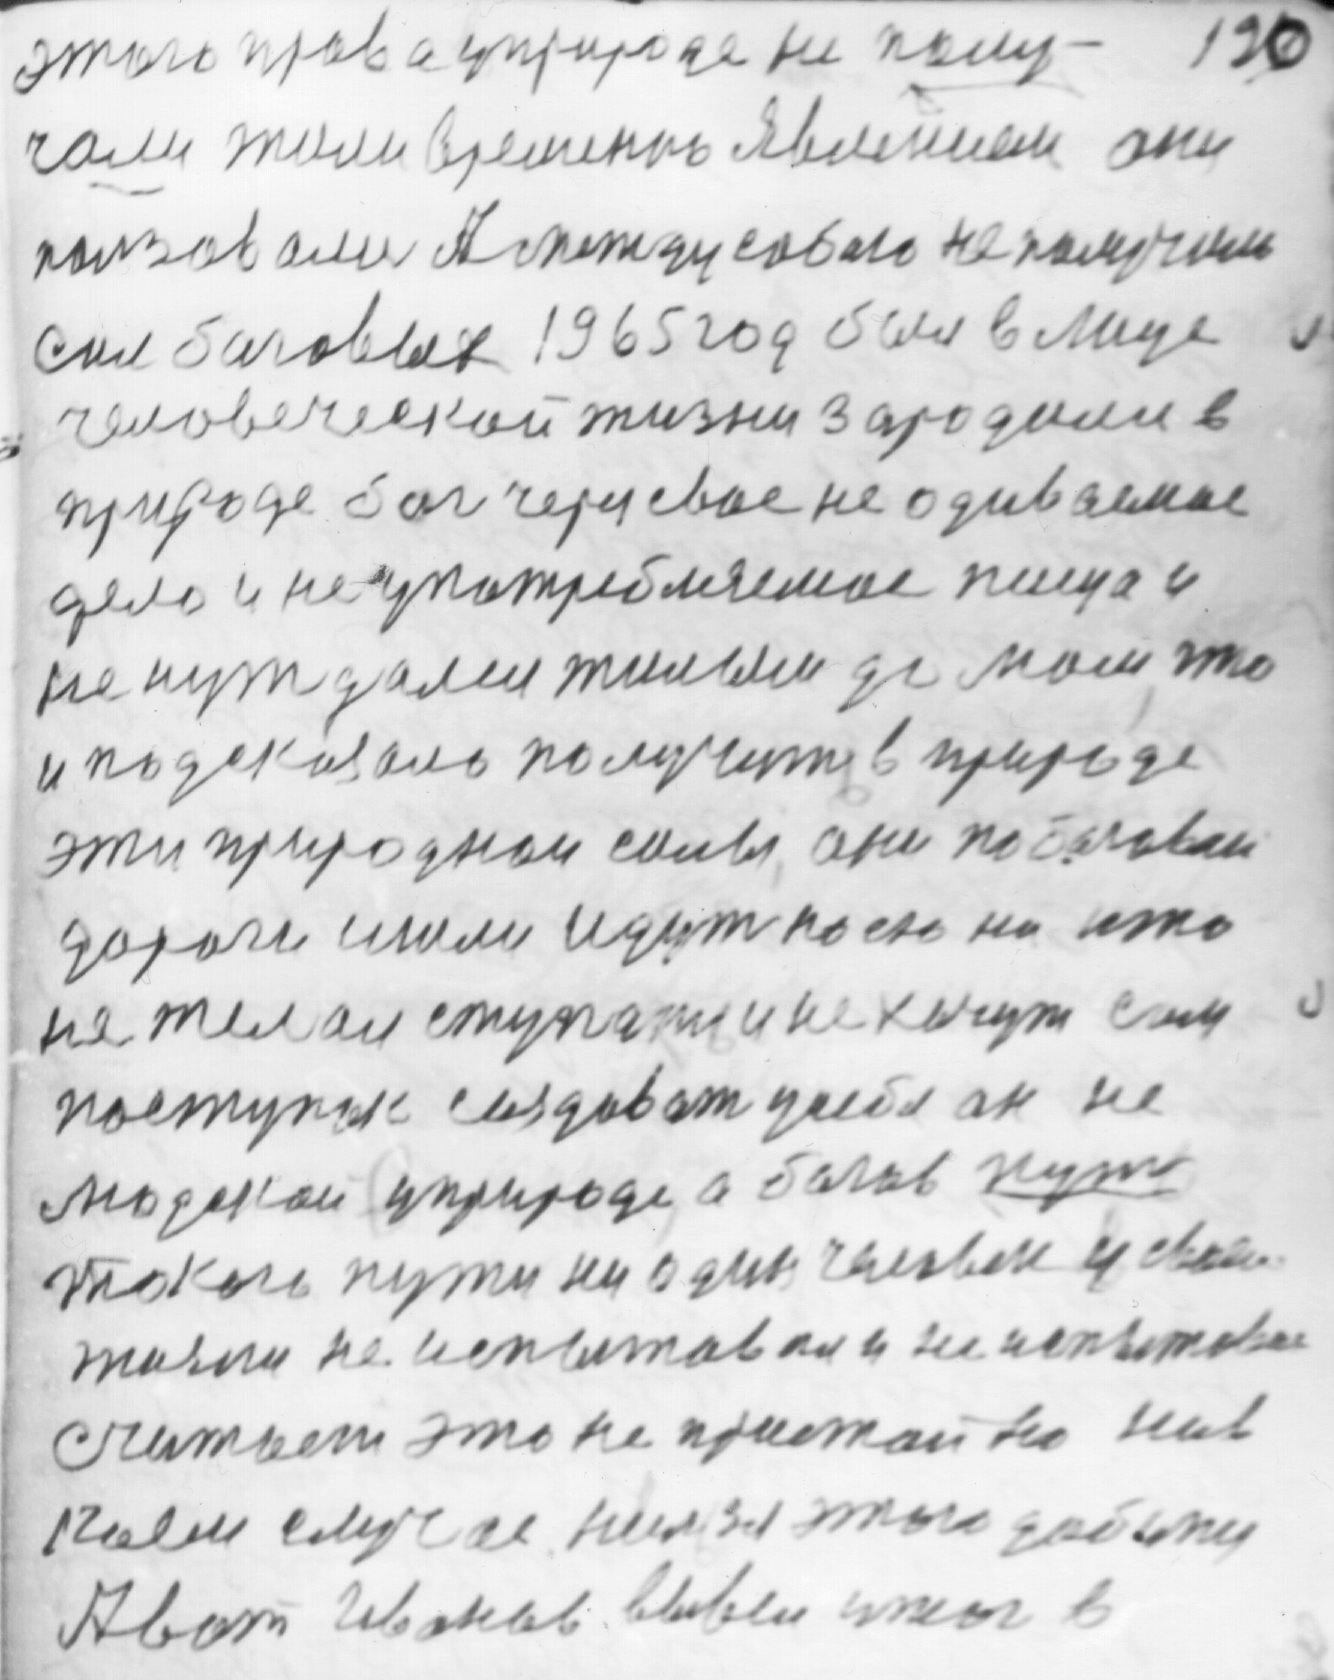 этого права у природе не полу- 120
чали жили временно явлением они
ползовали А между собою не получали
сил баговых 1965 год был в лице
человеческой жизни зародили в
природе бог черы свое не одиваемое
дело и не употребляемое пища и
не нуждался жилым домом, это
и подсказало получить в природе
эти природнои силы, они по баговои
дороги шли идут по сю на што
не желал ступать и не хочут сам
поступок создоват уцебя он не
людской у природе, а багов путь
такого пути ни один человек у своей
жизни не испытовал и не испытовае
считает это не пристойно ни в
коем случае нилзя этого добится
А вот Иванов вывел итог в